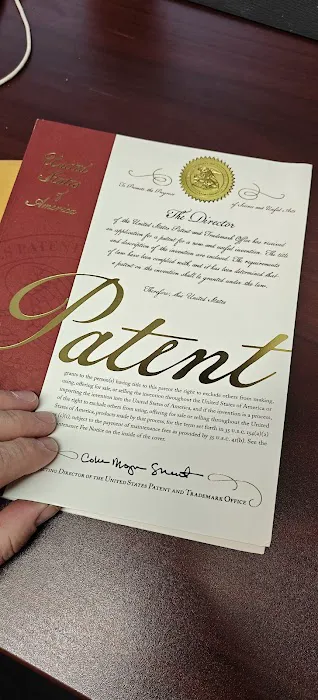 United
States
of
America
To Promote the Progress
of Science and Useful Arts
The Director
of the United States Patent and Trademark Office has received
an application for a patent for a new and useful invention. The title
and description of the invention are enclosed. The requirements
of law have been complied with, and it has been determined that
a patent on the invention shall be granted under the law.
Therefore, this United States
Patent
grants to the person(s) having title to this patent the right to exclude others from making,
using, offering for sale, or selling the invention throughout the United States of America or
importing the invention into the United States of America, and if the invention is a process,
of the right to exclude others from using, offering for sale or selling throughout the United
States of America, products made by this process, for the term set forth in 35 U.S.C. 154(a)(2)
(c)(1), subject to the payment of maintenance fees as provided by 35 U.S.C. 41(b). See the
Maintenance Fee Notice on the inside of the cover.
Coke Morgan Stewart
Acting Director of the United States Patent and Trademark Office